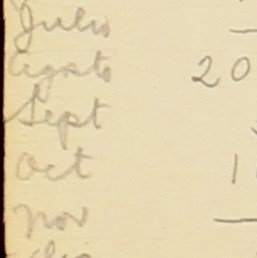 Julio —
agosto 20
Sept
Oct 1
Nov —